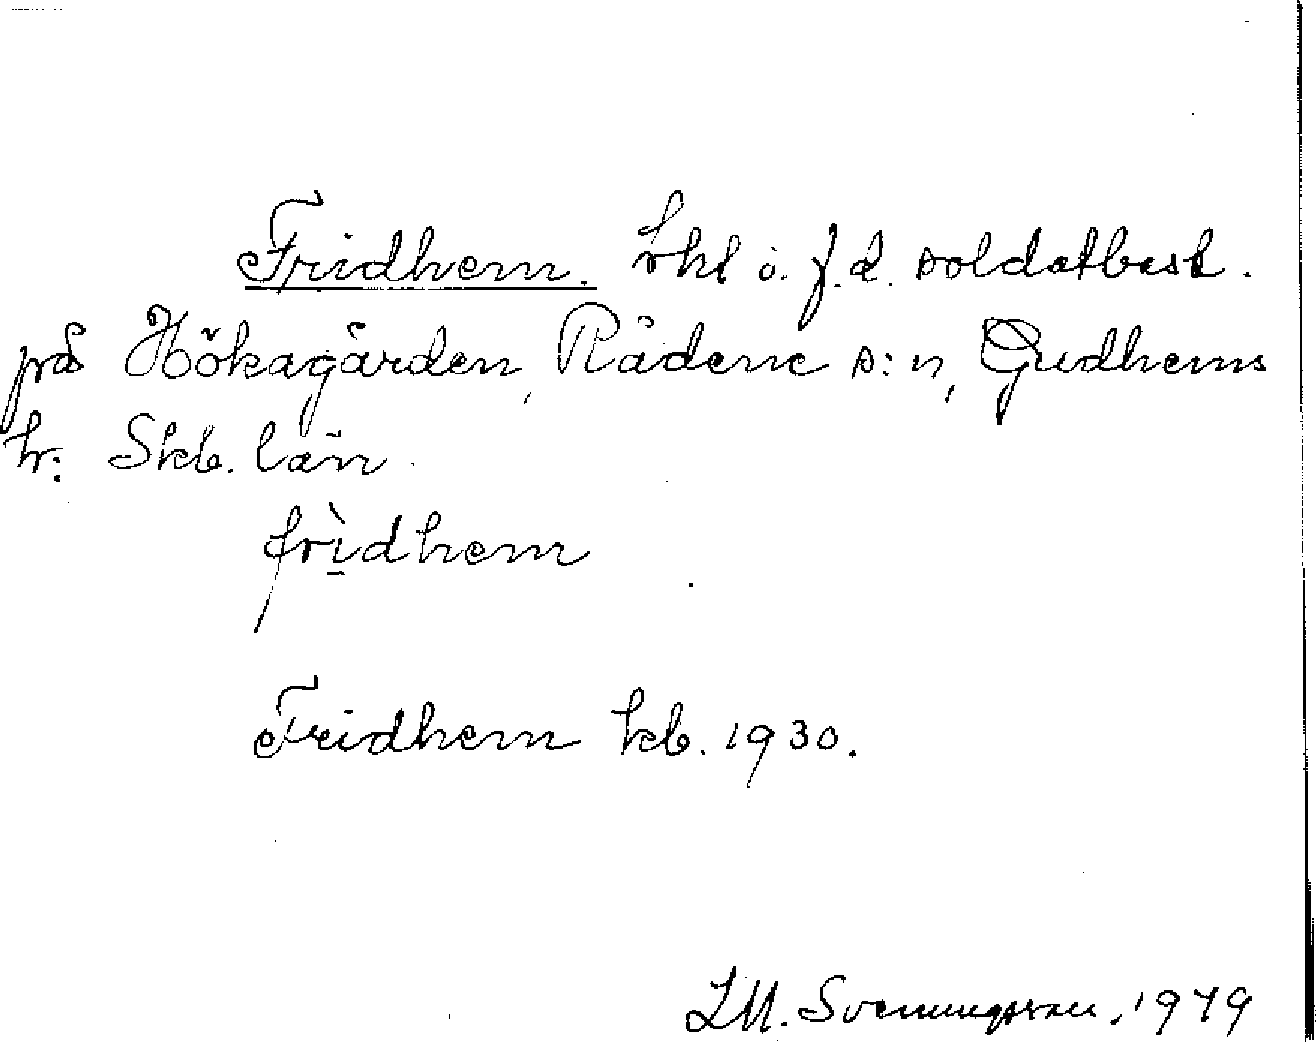 Fridhem. lhl o. f.d. soldatbest.
på Hökagården, Rådene s:n, Gudhems
h: Skb. län
frìdhem
Fridhem kb. 1930.
LM. Svenungsson, 1979